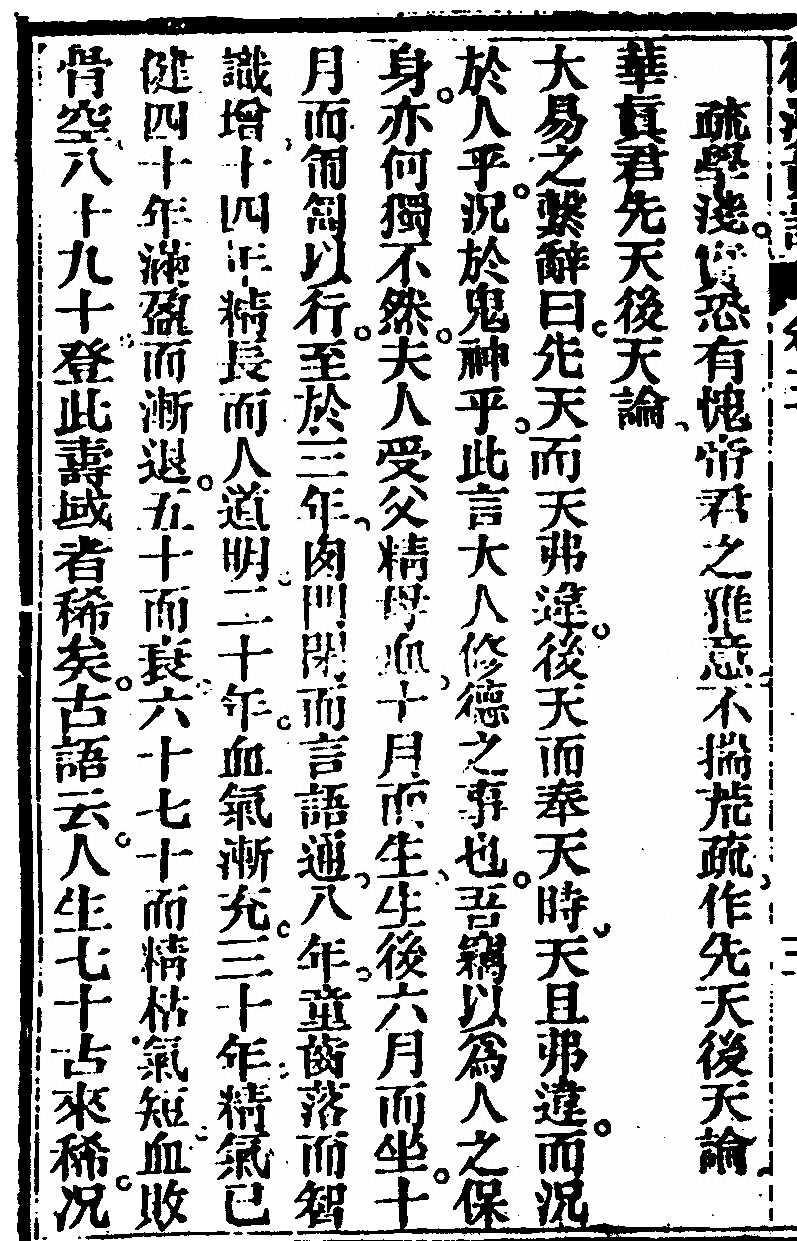 疏學淺實恐有愧帝君之雅意不揣荒疏作先天後天論
華真君先天後天論
大易之繫辭曰先天而天弗違後天而奉天時天且弗違而況
於人乎況於鬼神乎此言大人修德之事也吾竊以為人之保
身亦何獨不然夫人受父精母血十月而生生後六月而坐十
月而匍匐以行至於三年囟門閉而言語通八年童齒落而智
識增十四年精長而人道明二十年血氣漸充三十年精氣已
健四十年滿盈而漸退五十而衰六十七十而精枯氣短血敗
骨空八十九十登此壽域者稀矣古語云人生七十古來稀況